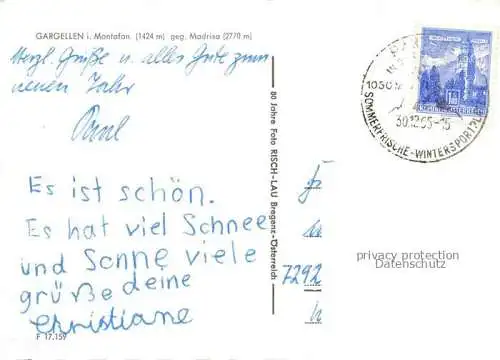 GARGELLEN i. Montafon (1424 m) geg. Madrisa (2770 m)
Herzl. Grüße u. alles Gute zum
neuen Jahr
Es ist schön.
Es hat viel Schnee
und Sonne viele
grüße deine
Christiane
F 17.159
80 Jahre Foto RISCH-LAU Bregenz-Österreich
1030 M
30.12.65-15
SOMMERFRISCHE-WINTERSPORTPL
REPUBLIK ÖSTERREICH
7292
privacy protection
Datenschutz